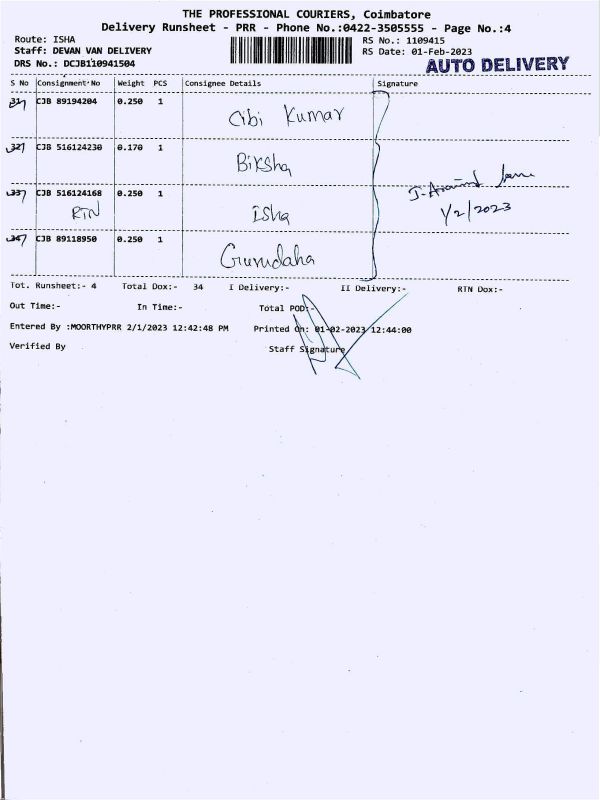 THE PROFESSIONAL COURIERS, Coimbatore
Delivery Runsheet - PRR - Phone No.:0422-3505555 - Page No.:4
Route: ISHA
RS No.: 1109415
Staff: DEVAN VAN DELIVERY
RS Date: 01-Feb-2023
DRS No.: DCJB110941504
AUTO DELIVERY
S No Consignment No Weight PCS Consignee Details Signature
31 CJB 89194204 0.250 1
Cibi Kumar
32 CJB 516124230 0.170 1
Biksha
33 CJB 516124168 0.250 1
RTN Isha
1/2/2023
34 CJB 89118950 0.250 1
Gurudaha
Tot. Runsheet:- 4 Total Dox:- 34 I Delivery:- II Delivery:- RTN Dox:-
Out Time:- In Time:- Total POD:-
Entered By :MOORTHYPRR 2/1/2023 12:42:48 PM Printed On: 01-02-2023 12:44:00
Verified By Staff Signature